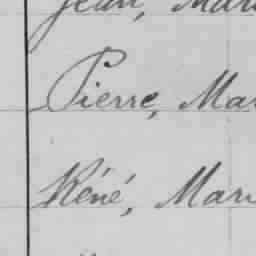 Jean, Mar
Pierre, Mar
Réné, Mari